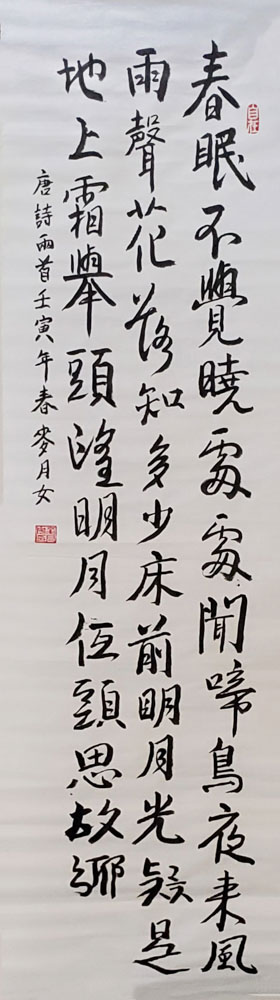 春眠不覺曉處處聞啼鳥夜来風
雨聲花落知多少床前明月光疑是
地上霜舉頭望明月低頭思故鄉
唐詩兩首壬寅年春麥月女
自在